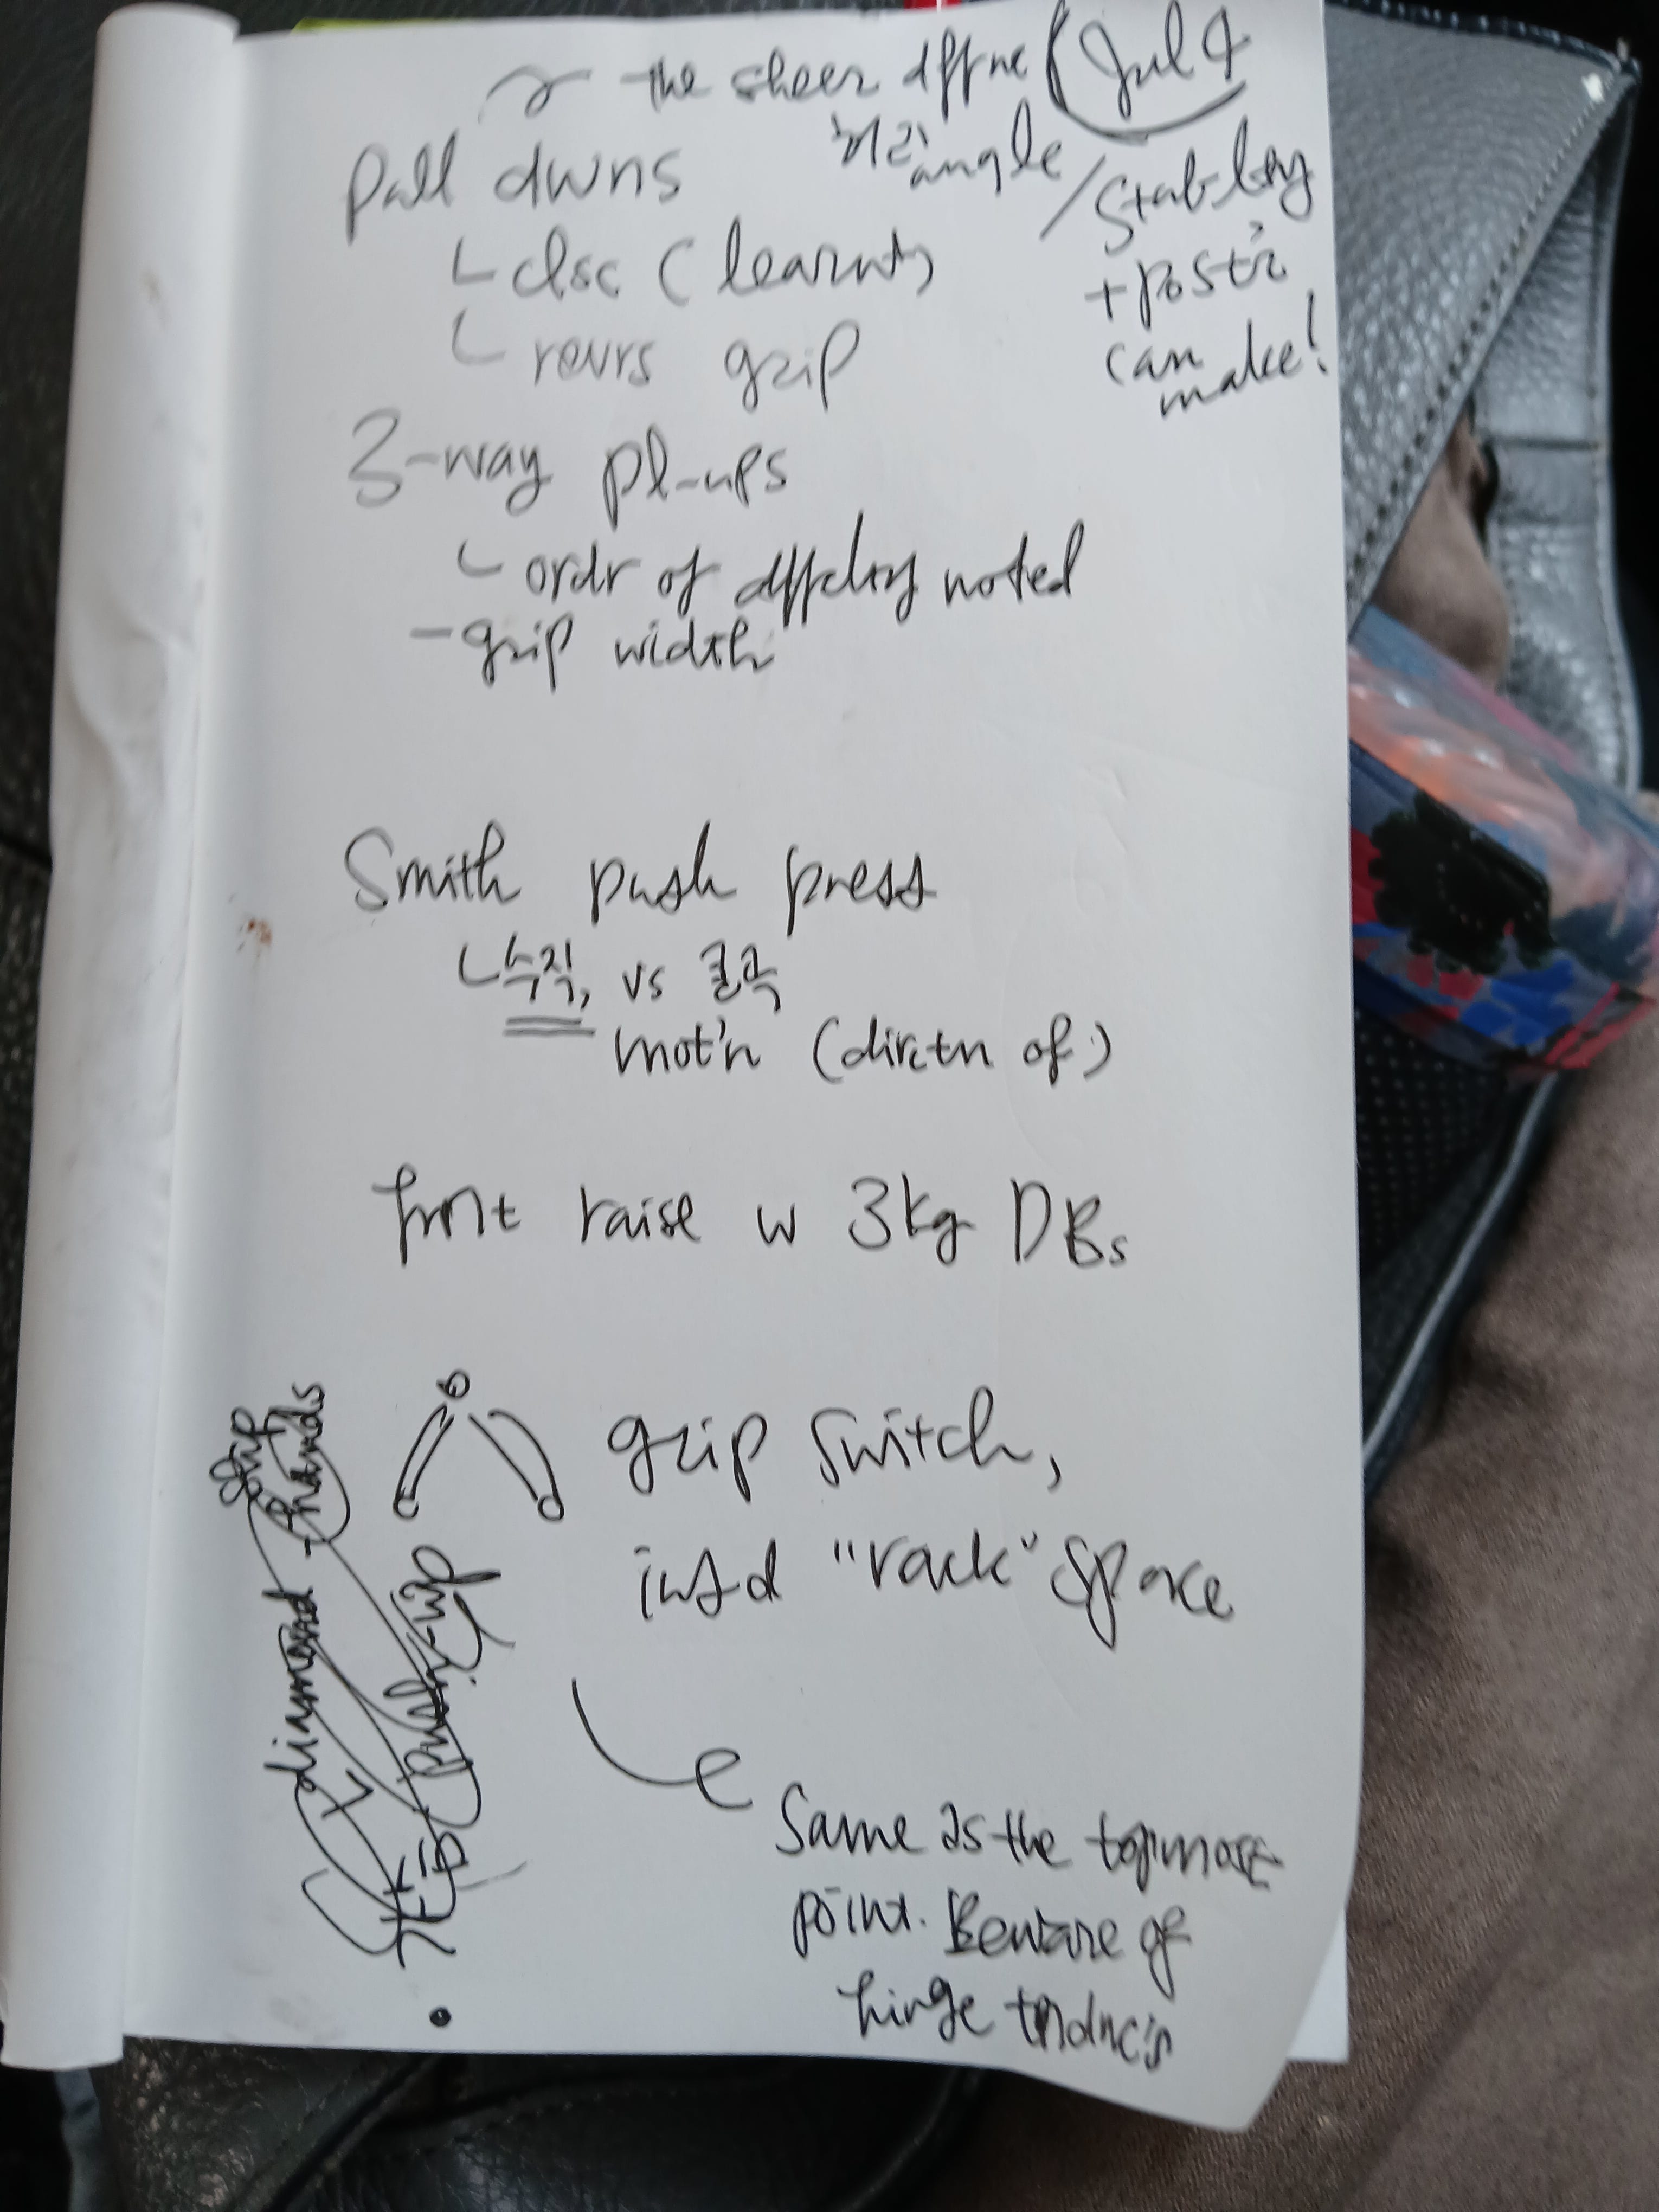 the sheer dffrnc
Jul 4
angle / stablty
+ postr
can
make!
Pull dwns
clsc (learnt)
revrs grip
3-way pl-ups
ordr of dffclty noted
- grip width
Smith push press
수직, vs 굴곡
mot'n (dirctn of)
frnt raise w 3kg DBs
grip switch,
instd "rack" space
Same as the topmost
point. Beware of
hinge tndnc's
push-up
diamond -hands
grip